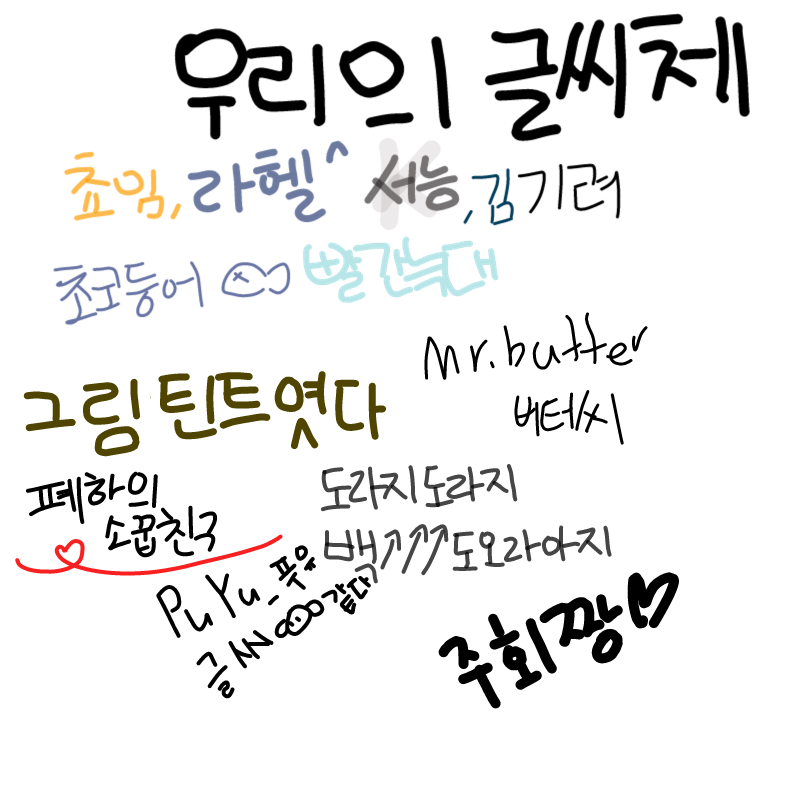 우리의 글씨체
초밈, 라헬^ 서능, 김기려
초코둥어 빨간늑대
Mr.butter
버터씨
그림 틴트였다
폐하의
소꿉친구
도라지도라지
백↗↗↗도오라아지
PuYu_푸유
글씨 같다
주회짱♡